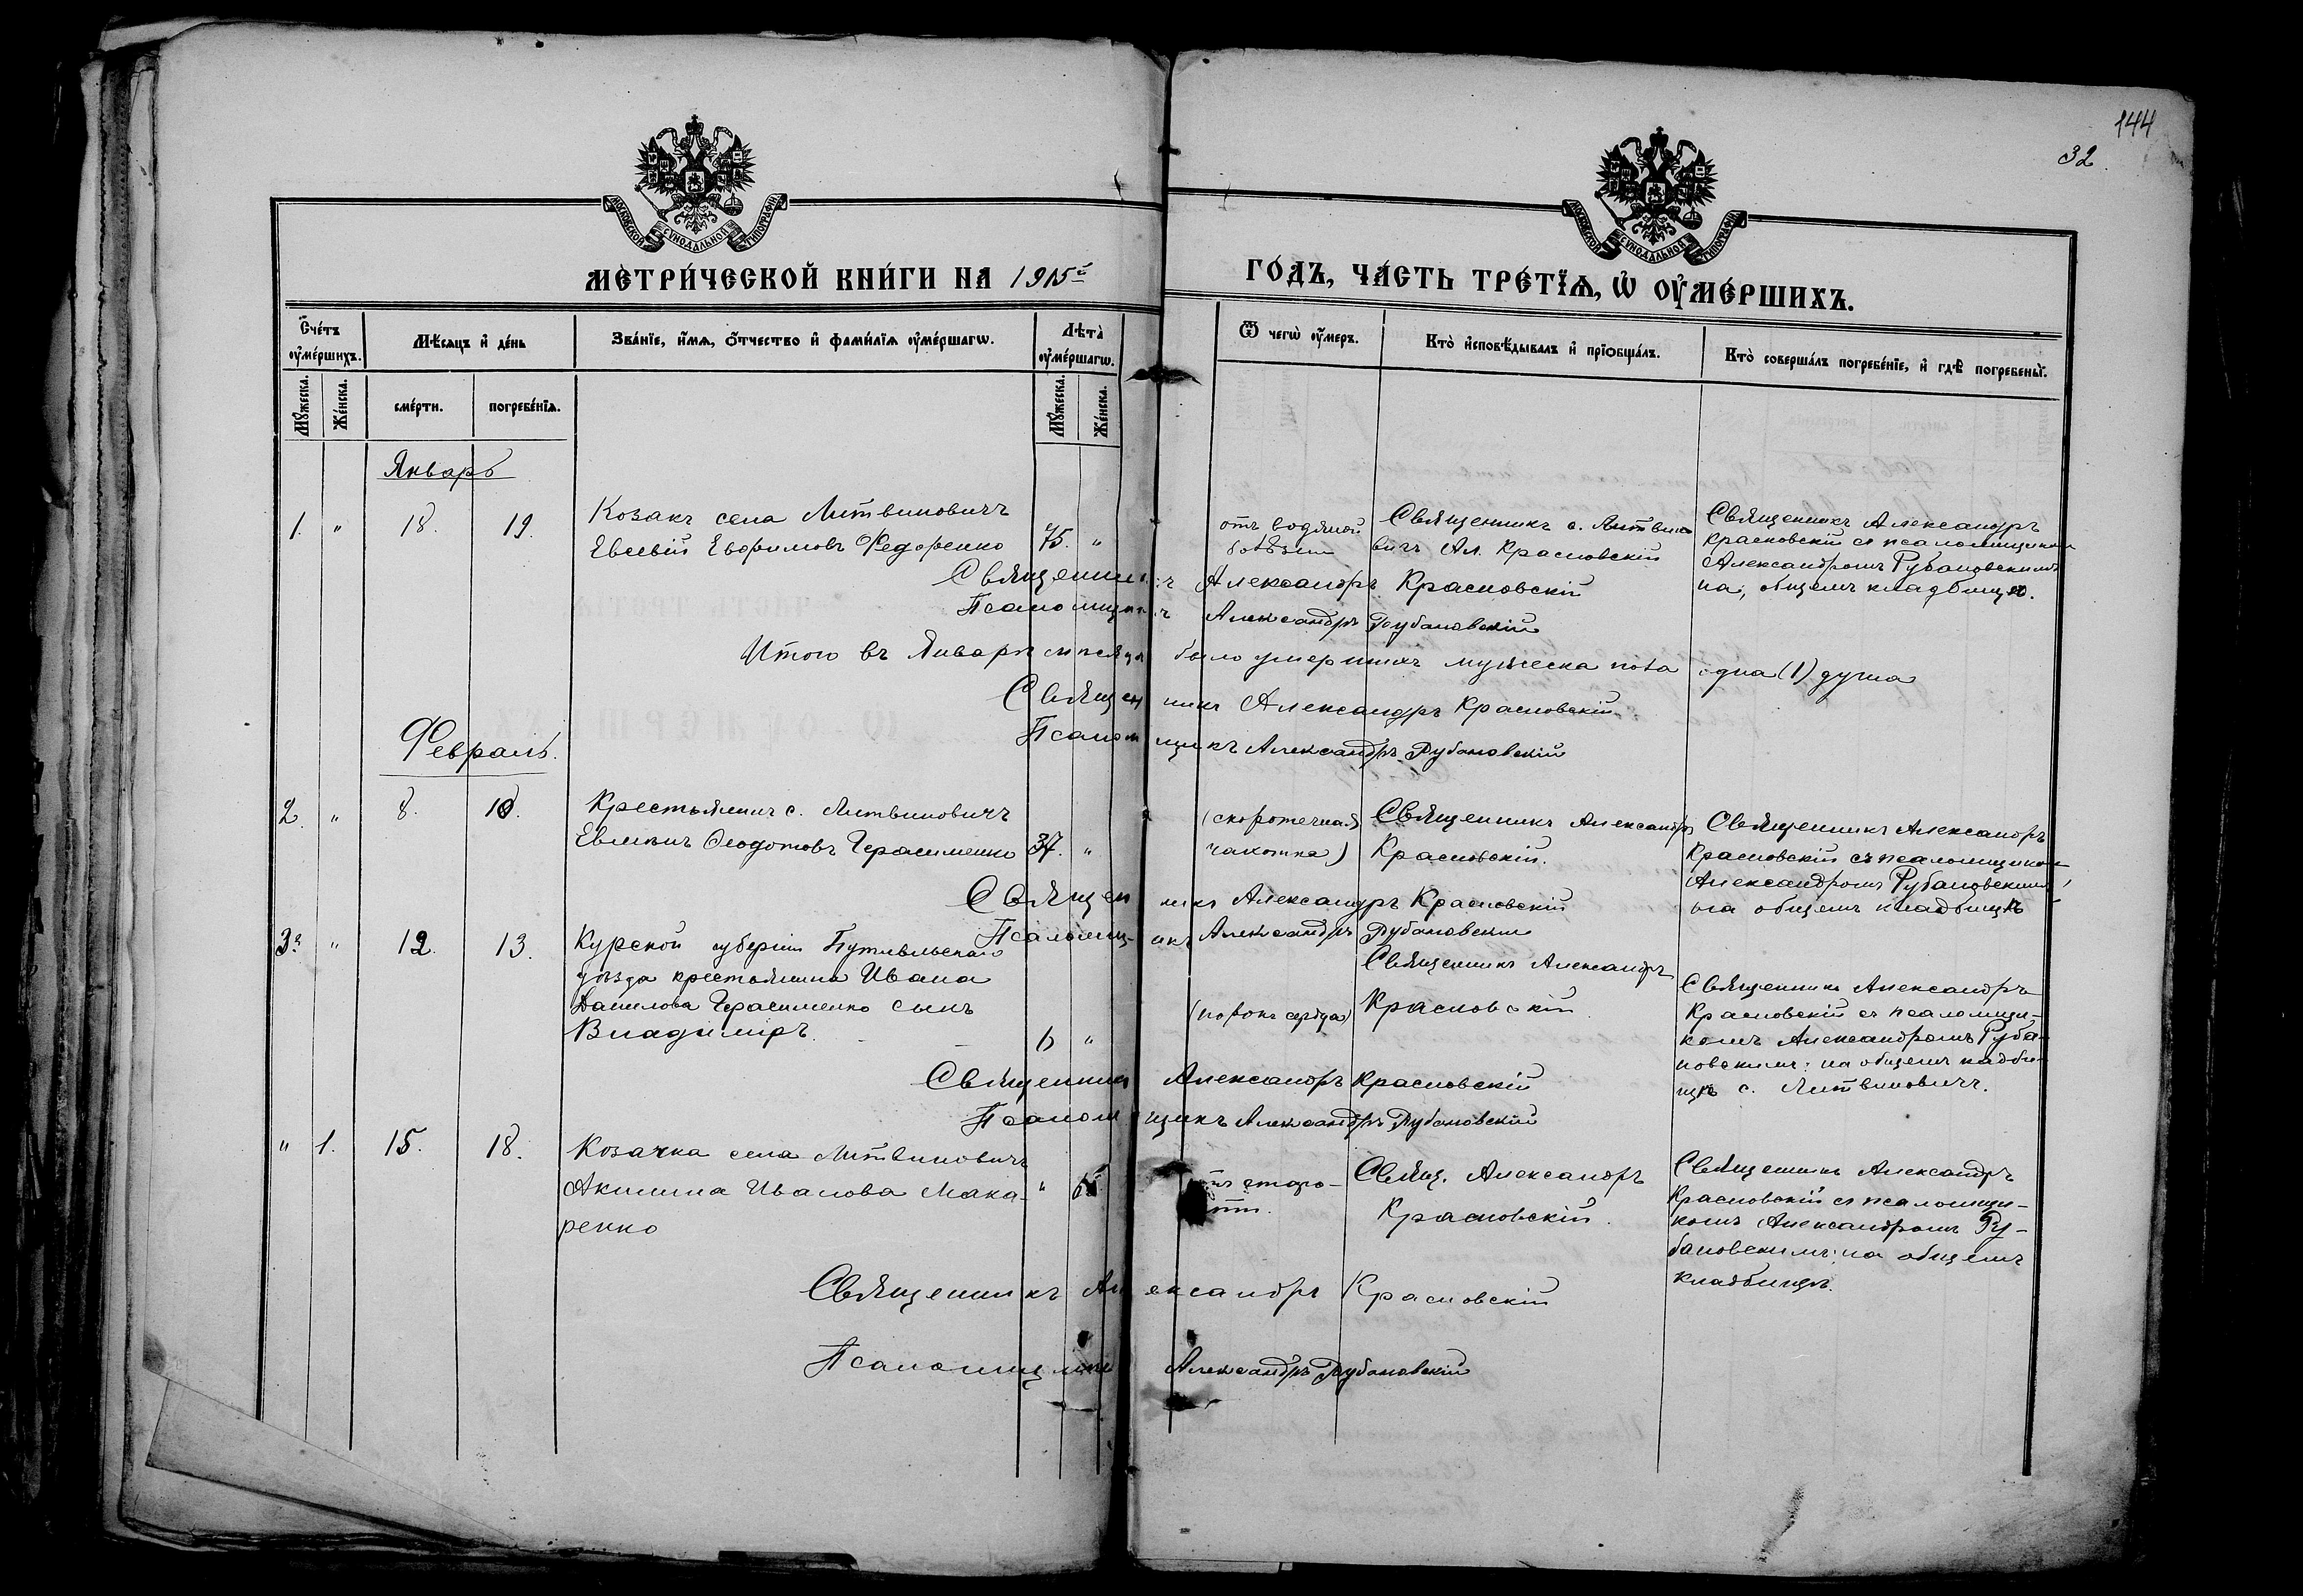 144
32
МОСКОВСКОЙ СУНОДАЛЬНОЙ ТИПОГРАФІИ
МОСКОВСКОЙ СУНОДАЛЬНОЙ ТИПОГРАФІИ
МЕТРИ́ЧЕСКОЙ КНИ́ГИ НА 1915й
ГО́ДЪ, ЧА́СТЬ ТРЕ́ТЇѦ, Ѡ҆ ОУ҆МЕ́РШИХЪ.
Сче́тъ оу҆ме́ршихъ.
Мѣ́сяцъ и҆ де́нь
Зва́нїе, и҆́мѧ, ѻ҆́тчество и҆ фами́лїѧ оу҆ме́ршагѡ.
Лѣта̀ оу҆ме́ршагѡ.
Ѿ чегѡ̀ оу҆́меръ.
Кто̀ и҆сповѣ́дывалъ и҆ прїобща́лъ.
Кто̀ соверша́лъ погребе́нїе, и҆ гдѣ̀ погребены̀.
Мꙋ́жеска.
Же́нска.
сме́рти.
погребе́нїѧ.
Мꙋ́жеска.
Же́нска.
Январь
1. " 18. 19.
Козакъ села Литвиновичъ
Евсевій Ефримовъ Федоренко 75. "
отъ водяной
болѣзни
Священникъ с. Литвино
вичъ Ал. Красновскій
Священникъ Александръ
Красновскій съ псаломщикомъ
Александромъ Рубановскимъ
на, общемъ кладбищѣ.
Священникъ Александръ Красновскій
Псаломщикъ Александръ Рубановскій
Итого въ Январѣ мѣсяцѣ было умершихъ мужеска пола одна (1) душа
Священникъ Александръ Красновскій
Псаломщикъ Александръ Рубановскій
Февраль.
2. " 8. 10.
Крестьянинъ с. Литвиновичъ
Ѳеодотовъ Герасименко 37. "
(скоротечная
чахотка)
Священникъ Александръ
Красновскій.
Священникъ Александръ
Красновскій съ псаломщикомъ
Александромъ Рубановскимъ,
на общемъ кладбищѣ
Священникъ Александръ Красновскій
Псаломщикъ Александръ Рубановскій
3. " 12. 13.
Курской губерніи Путивльскаго
уѣзда крестьянина Ивана
Данилова Герасименко сынъ
Владиміръ. "
(порокъ сердца)
Священникъ Александръ
Красновскій.
Священникъ Александръ
Красновскій съ псаломщи-
комъ Александромъ Руба-
новскимъ; на общемъ кладби-
щѣ с. Литвиновичъ.
Священникъ Александръ Красновскій
Псаломщикъ Александръ Рубановскій
" 1. 15. 18.
Козачка села Литвиновичъ
Акилина Иванова Мака- "
ренко
отъ старо-
сти.
Свящ. Александръ
Красновскій.
Священникъ Александръ
Красновскій съ псаломщи-
комъ Александромъ Ру-
бановскимъ; на общемъ
кладбищѣ.
Священникъ Александръ Красновскій
Псаломщикъ Александръ Рубановскій